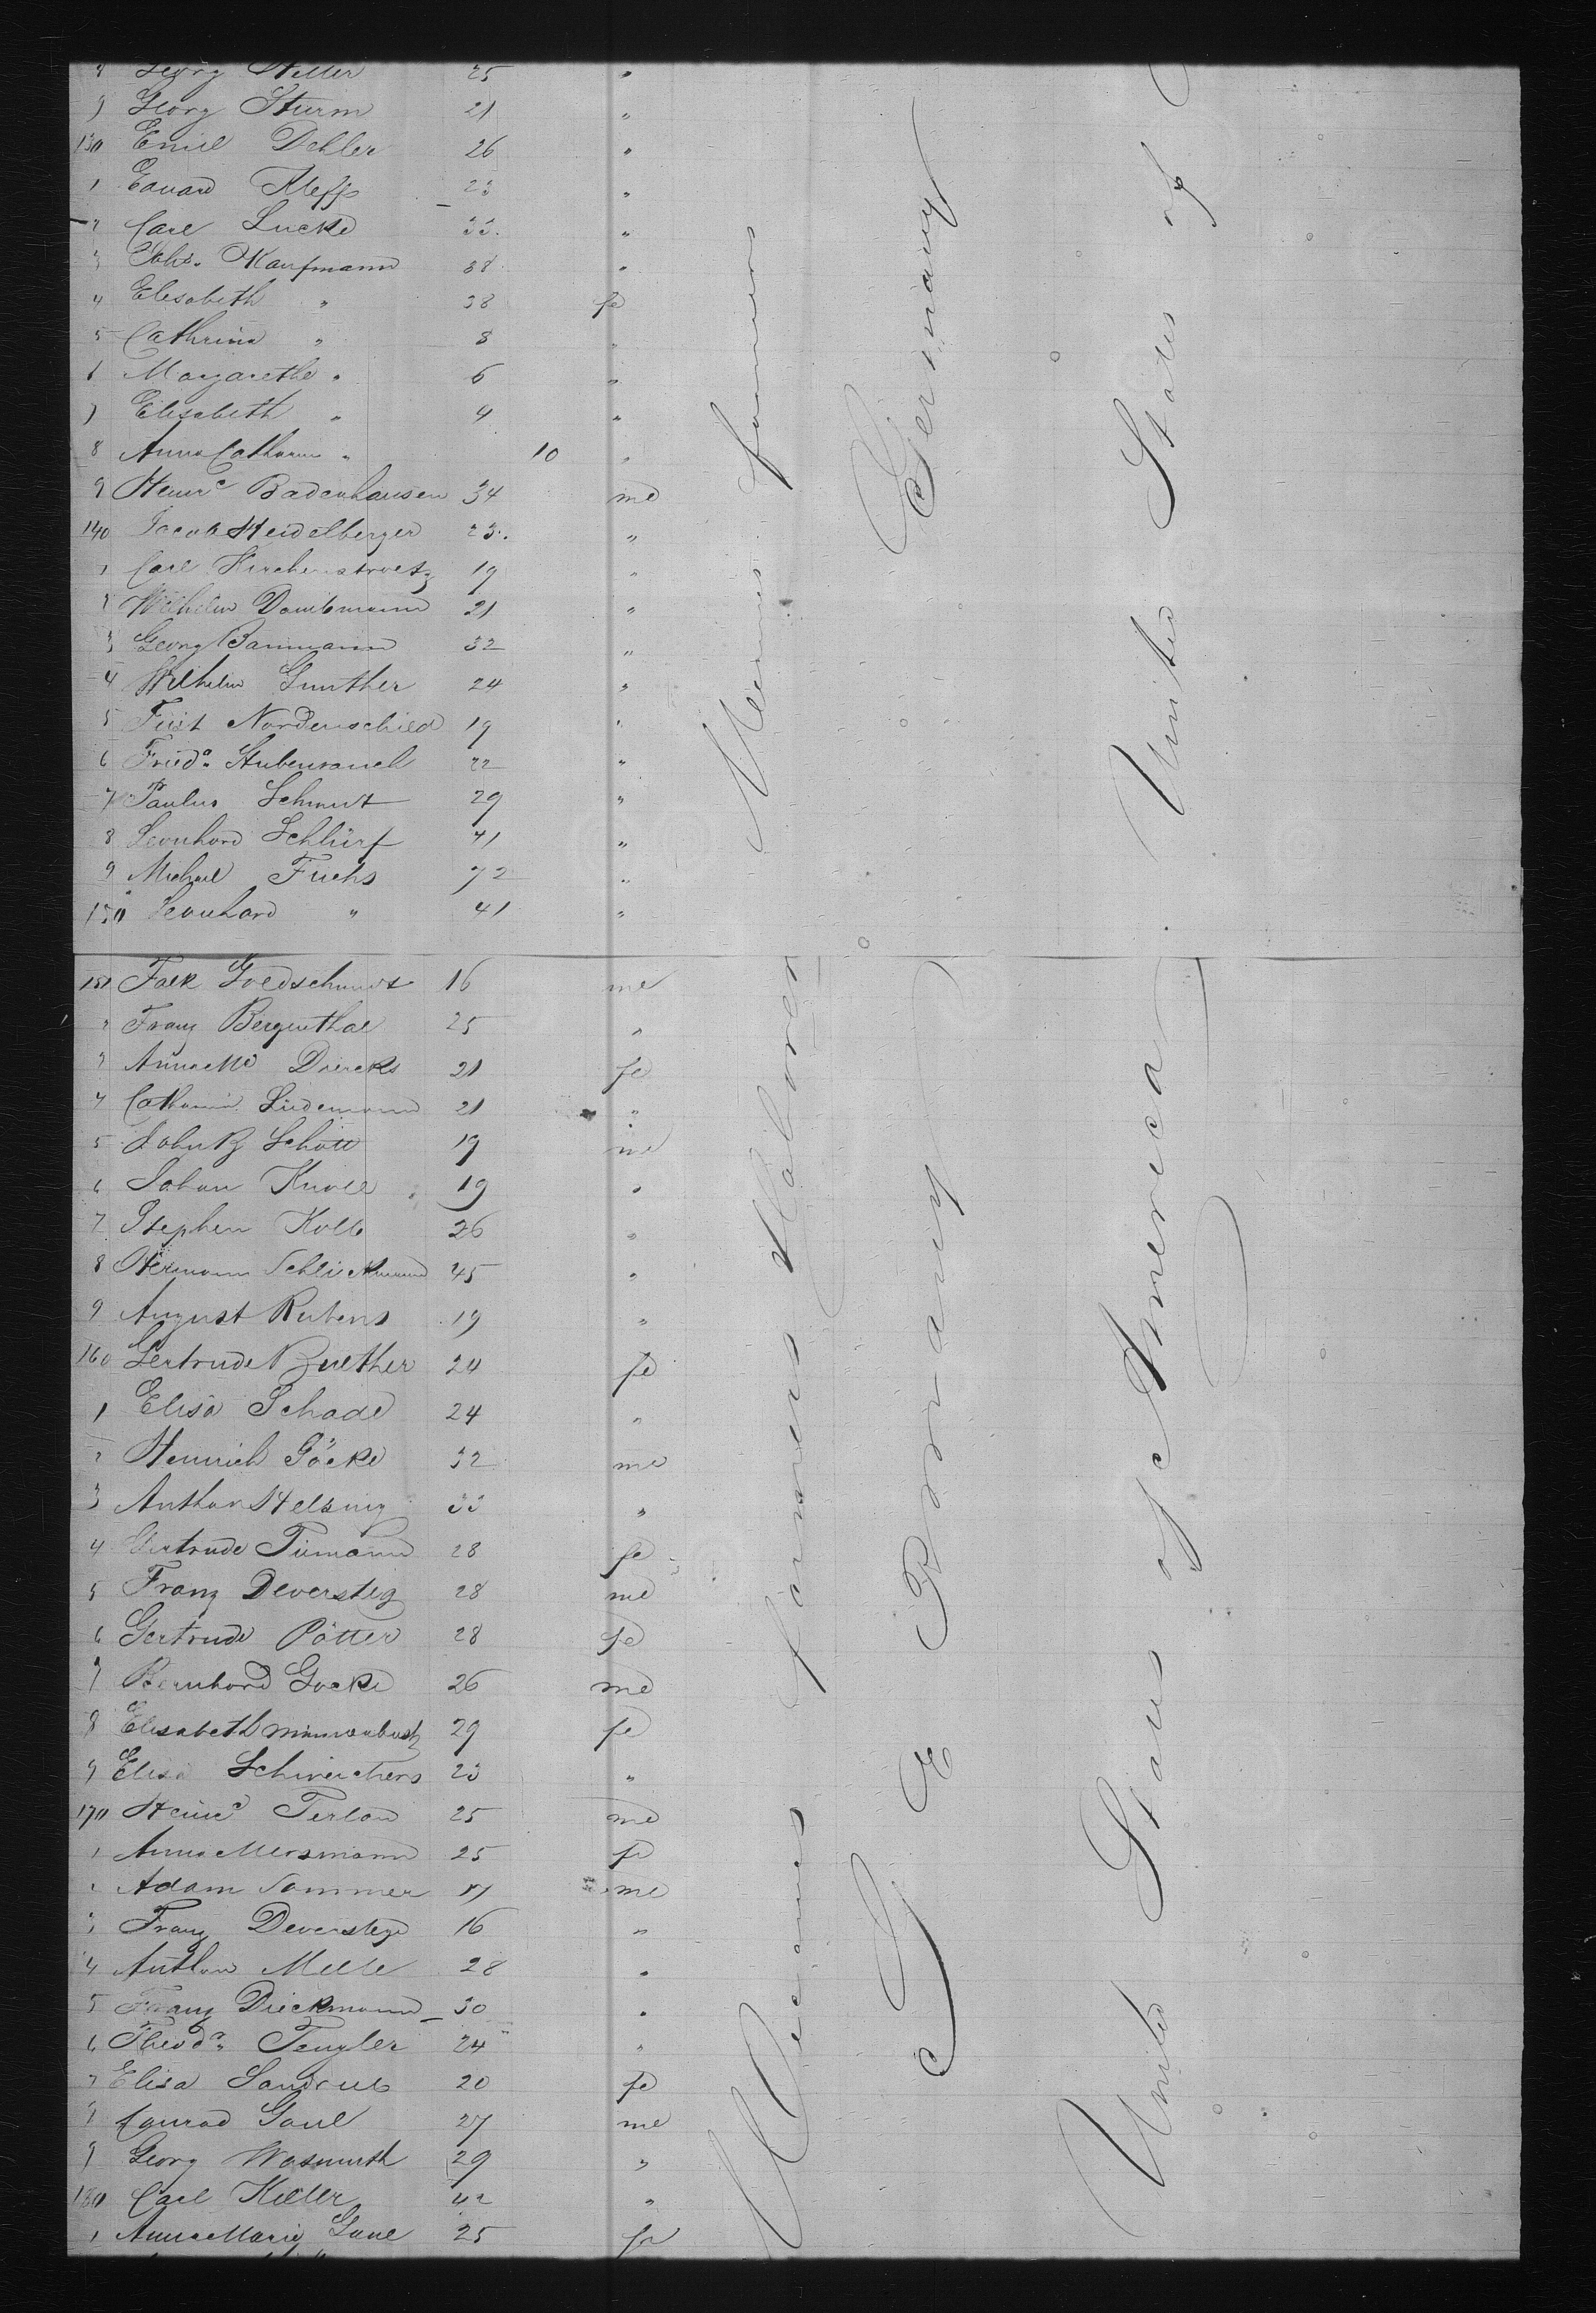 8 Georg Heller 25 "
9 Georg Sturm 21 "
130 Emil Dehler 26 "
1 Eduard Kleff 23 "
2 Carl Lucke 33 "
3 Kaufmann 38 "
4 Elisabeth " 38 fe
5 Cathrina " 8 "
6 Margarethe " 6 "
7 Elisabeth " 4 "
8 Anna Catharin " 10 "
9 Heinrc Badenhausen 34 me
140 Jacob Heidelberger 23 "
1 Carl 19 "
2 Wilhelm 21 "
3 Georg Baumann 32 "
4 Wilhelm Gunther 24 "
5 Nordenschild 19 "
6 Friedr. Stubenrauch 22 "
7 Paulus Schmidt 29 "
8 Leonhard Schlürf 41 "
9 Michael Fuchs 72 "
150 Leonhard " 41 "
Mecanics farmers
Germany
United States of
151 Falk Goldschmidt 16 me
2 Franz Bergenthal 25 "
3 Diercks 21 fe
4 Catharin Lüdemann 21 "
5 Schott 19 me
6 Johan Knoll 19 "
7 Stephen Kolb 26 "
8 Hermann 45 "
9 August Rubens 19 "
160 Gertrude 24 fe
1 Elisa Schade 24 "
2 Heinrich Göcke 32 me
3 Anthon Helbing 33 "
4 Gertrude Tiemann 28 fe
5 Franz Deversteg 28 me
6 Gertrude Pötter 28 fe
7 Bernhard Gocke 26 me
8 Elisabeth 29 fe
9 Elisa Schweichers 23 "
170 Heinrc Terlow 25 me
1 Anna Mersmann 25 fe
2 Adam Sommer 17 me
3 Franz Deverstege 16 "
4 Anthon Melle 28 "
5 Franz Dieckmann 30 "
6 Theodr. Tengler 24 "
7 Elisa 20 fe
8 Conrad Gaul 27 me
9 Georg Wasmuth 29 "
180 Carl Keller 42 "
1 Anna Marie Gaul 25 fe
Mecanics farmers & labores
Germany
United States of America